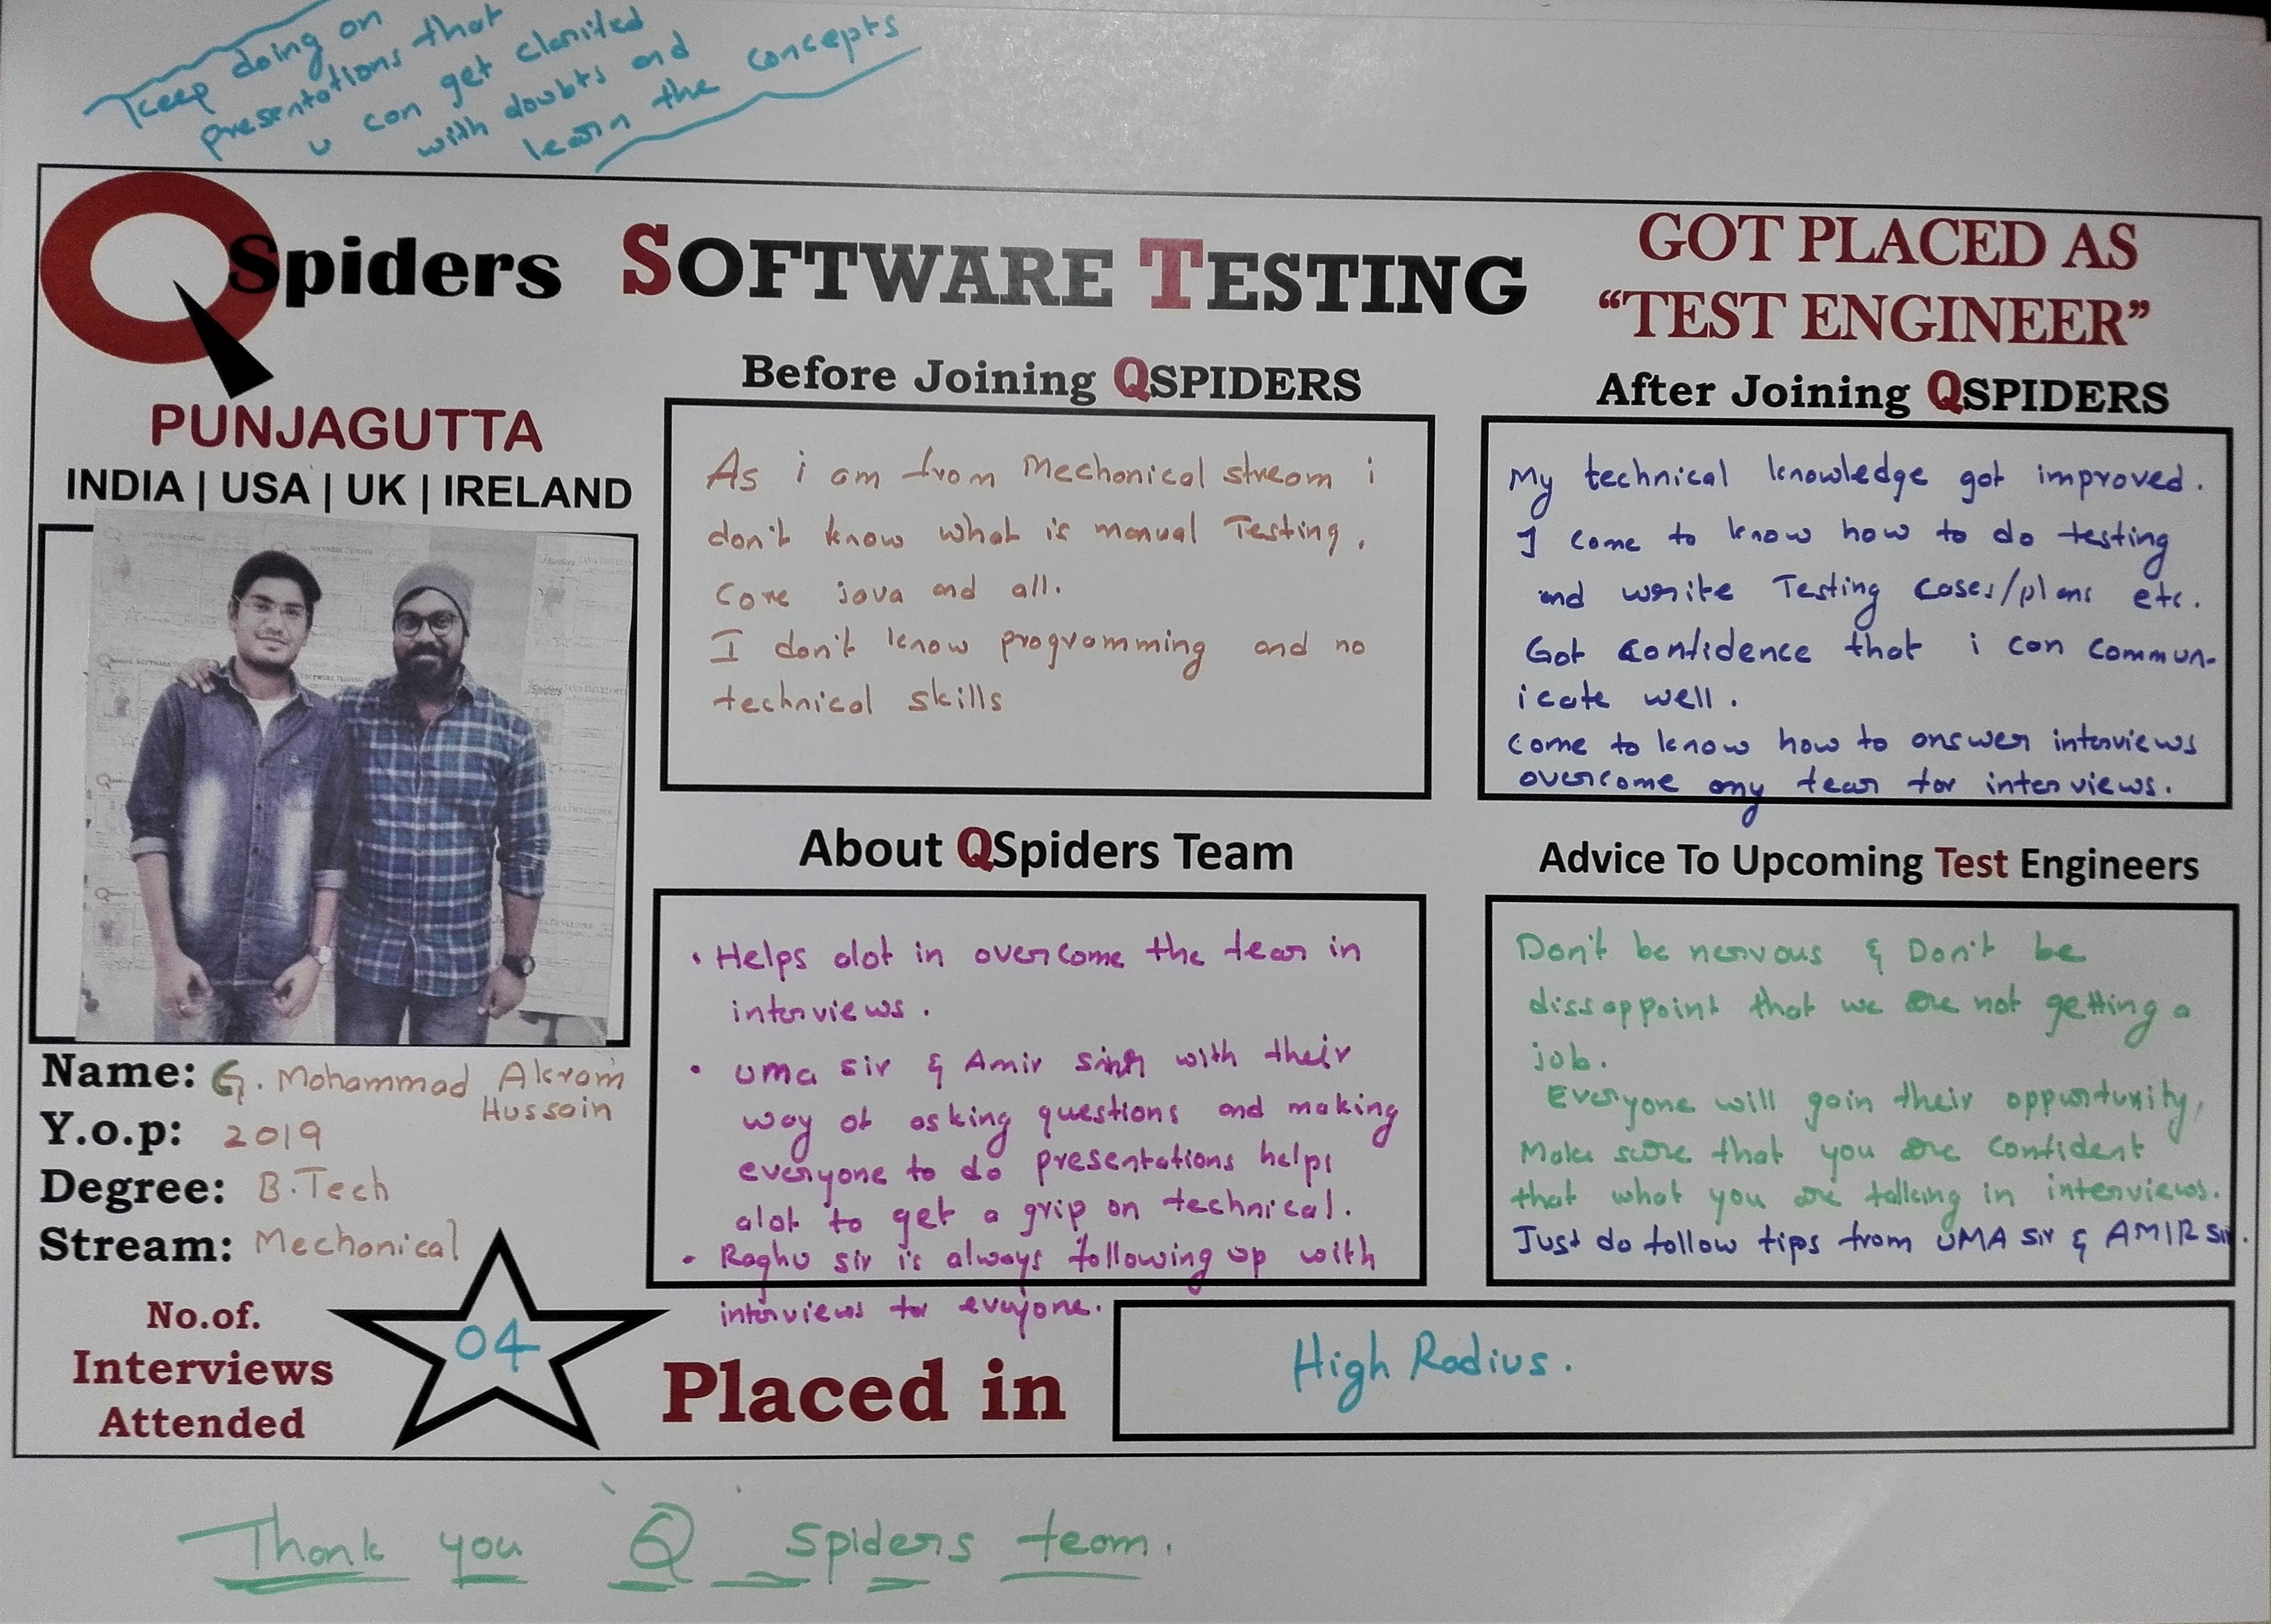 Keep doing on
presentations that
u can get clarified
with doubts and
learn the concepts
QSpiders
SOFTWARE TESTING
GOT PLACED AS
“TEST ENGINEER”
PUNJAGUTTA
INDIA | USA | UK | IRELAND
Before Joining QSPIDERS
As i am from Mechanical stream i
don't know what is manual Testing,
Core java and all.
I don't know programming and no
technical skills
After Joining QSPIDERS
My technical knowledge got improved.
I come to know how to do testing
and write Testing Cases/plans etc.
Got confidence that i can commun-
icate well.
Come to know how to answer interviews
overcome my fear for interviews.
Name: G. Mohammad Akram
Hussain
Y.o.p: 2019
Degree: B.Tech
Stream: Mechanical
No.of.
Interviews
Attended
04
About QSpiders Team
• Helps alot in overcome the fear in
interviews.
• uma sir & Amir sir with their
way of asking questions and making
everyone to do presentations helps
alot to get a grip on technical.
• Raghu sir is always following up with
interviews for everyone.
Advice To Upcoming Test Engineers
Don't be nervous & Don't be
dissappoint that we are not getting a
job.
Everyone will gain their oppurtunity,
Make sure that you are confident
that what you are talking in interviews.
Just do follow tips from UMA sir & AMIR sir.
Placed in
High Radius.
Thank you Q Spiders team.